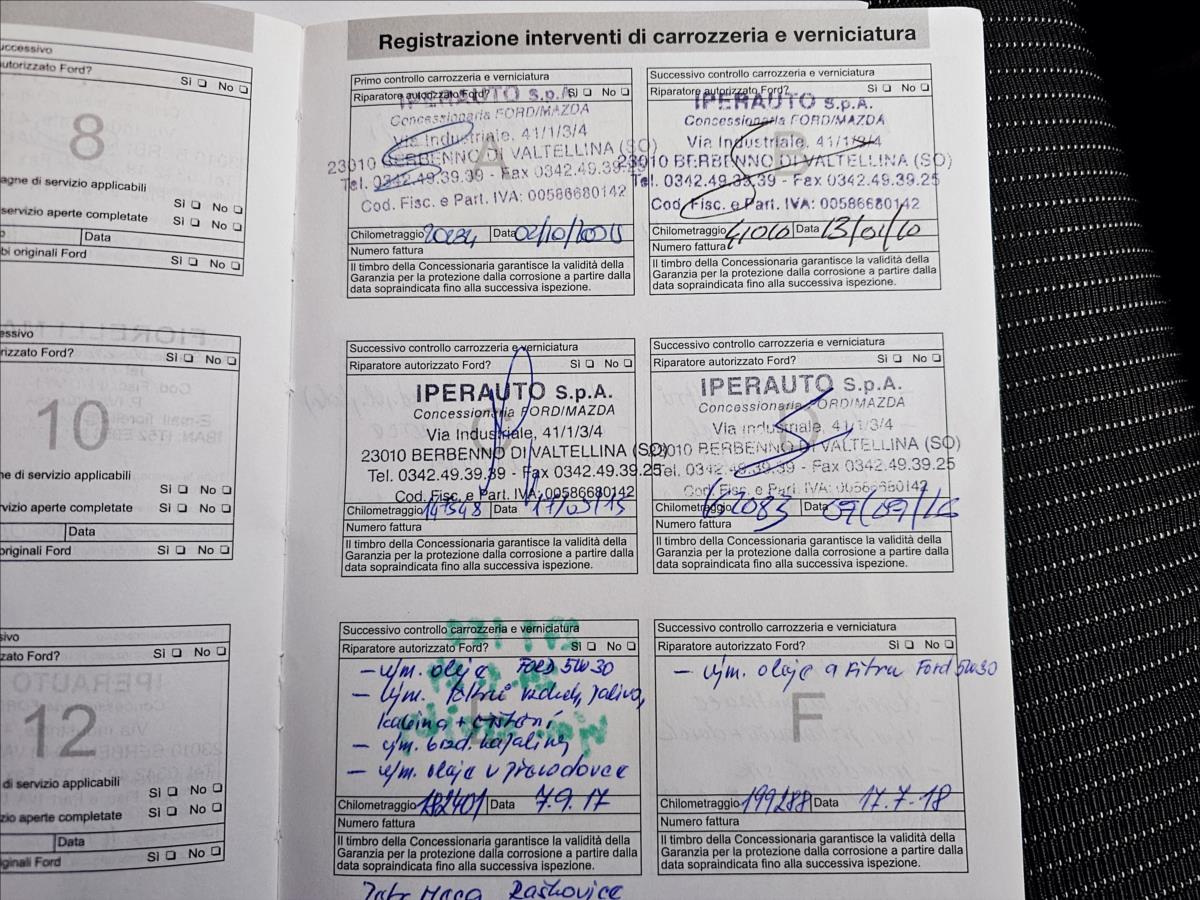 uccessivo
utorizzato Ford?
Sì ❏ No ❏
8
agne di servizio applicabili
Sì ❏ No ❏
servizio aperte completate
Sì ❏ No ❏
Data
bi originali Ford
Sì ❏ No ❏
essivo
rizzato Ford?
Sì ❏ No ❏
10
ne di servizio applicabili
Sì ❏ No ❏
rvizio aperte completate
Sì ❏ No ❏
Data
originali Ford
Sì ❏ No ❏
sivo
zato Ford?
Sì ❏ No ❏
12
di servizio applicabili
Sì ❏ No ❏
zio aperte completate
Sì ❏ No ❏
Data
ginali Ford
Sì ❏ No ❏
Registrazione interventi di carrozzeria e verniciatura
Primo controllo carrozzeria e verniciatura
Riparatore autorizzato Ford? Sì ❏ No ❏
IPERAUTO S.p.A.
Concessionaria FORD/MAZDA
Via Industriale, 41/1/3/4
23010 BERBENNO DI VALTELLINA
Tel. 0342.49.39.39 - Fax 0342.49.39.25
Cod. Fisc. e Part. IVA: 00586680142
Chilometraggio Data
Numero fattura
Il timbro della Concessionaria garantisce la validità della
Garanzia per la protezione dalla corrosione a partire dalla
data sopraindicata fino alla successiva ispezione.
Successivo controllo carrozzeria e verniciatura
Riparatore autorizzato Ford? Sì ❏ No ❏
IPERAUTO S.p.A.
Concessionaria FORD/MAZDA
Via Industriale, 41/1/3/4
23010 BERBENNO DI VALTELLINA (SO)
Tel. 0342.49.39.39 - Fax 0342.49.39.25
Cod. Fisc. e Part. IVA: 00586680142
Chilometraggio Data
Numero fattura
Il timbro della Concessionaria garantisce la validità della
Garanzia per la protezione dalla corrosione a partire dalla
data sopraindicata fino alla successiva ispezione.
Successivo controllo carrozzeria e verniciatura
Riparatore autorizzato Ford? Sì ❏ No ❏
IPERAUTO S.p.A.
Concessionaria FORD/MAZDA
Via Industriale, 41/1/3/4
23010 BERBENNO DI VALTELLINA (SO)
Tel. 0342.49.39.39 - Fax 0342.49.39.25
Cod. Fisc. e Part. IVA: 00586680142
Chilometraggio 147548 Data 17/03/15
Numero fattura
Il timbro della Concessionaria garantisce la validità della
Garanzia per la protezione dalla corrosione a partire dalla
data sopraindicata fino alla successiva ispezione.
Successivo controllo carrozzeria e verniciatura
Riparatore autorizzato Ford? Sì ❏ No ❏
IPERAUTO S.p.A.
Concessionaria FORD/MAZDA
Via Industriale, 41/1/3/4
23010 BERBENNO DI VALTELLINA (SO)
Tel. 0342.49.39.39 - Fax 0342.49.39.25
Cod. Fisc. e Part. IVA: 00586680142
Chilometraggio Data
Numero fattura
Il timbro della Concessionaria garantisce la validità della
Garanzia per la protezione dalla corrosione a partire dalla
data sopraindicata fino alla successiva ispezione.
Successivo controllo carrozzeria e verniciatura
Riparatore autorizzato Ford? Sì ❏ No ❏
- vým. oleje FORD 5W30
- vým. filtrů vzduch, paliva,
kabina + čištění
- vým. brzd. kapaliny
- vým. oleje v převodovce
Chilometraggio 182401 Data 7.9.17
Numero fattura
Il timbro della Concessionaria garantisce la validità della
Garanzia per la protezione dalla corrosione a partire dalla
data sopraindicata fino alla successiva ispezione.
Successivo controllo carrozzeria e verniciatura
Riparatore autorizzato Ford? Sì ❏ No ❏
- vým. oleje a filtru Ford 5W30
F
Chilometraggio 199288 Data 17.7.18
Numero fattura
Il timbro della Concessionaria garantisce la validità della
Garanzia per la protezione dalla corrosione a partire dalla
data sopraindicata fino alla successiva ispezione.
Raškovice